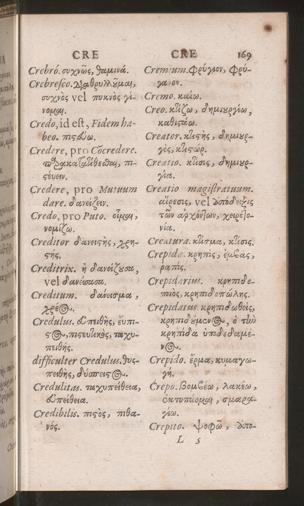 CRE CRE 169
Crebrò. συχνῶς, θαμινά.
Crebresco. διαθρυλλοῦμαι,
συχνός vel πυκνός γί-
νομαι.
Credo, id est, Fidem ha-
beo. πιστεύω.
Credere, pro Cōcredere.
παρακατατίθεσθαι, πι-
στεύειν.
Credere, pro Mutuum
dare. δανείζειν.
Credo, pro Puto. οἶμαι,
νομίζω.
Creditor δανειστής, χρή-
στης.
Creditrix. ἡ δανείζουσα,
vel δανείσασα.
Creditum. δάνεισμα,
χρέος.
Credulus. εὐπειθής, εὔπι-
στος, πιστευτικός, ταχυ-
πειθής.
difficulter Credulus. δυσ-
πειθής, δύσπιστος.
Credulitas. ταχυπείθεια,
εὐπείθεια.
Credibilis. πιστός, πιθα-
νός.
Cremium. φρύγιον, φρύ-
γανον.
Cremo. καίω.
Creo. κτίζω, δημιουργέω,
καθιστάω.
Creator. κτιστής, δημιουρ-
γός, κτίστωρ.
Creatio. κτίσις, δημιουρ-
γία.
Creatio magistratuum.
αἵρεσις, vel ἀπόδειξις
τῶν ἀρχόντων, χειροτο-
νία.
Creatura. κτίσμα, κτίσις.
Crepida. κρηπίς, ἐμβάς,
ῥαπίς.
Crepidarius. κρηπιδο-
ποιός, κρηπιδοπώλης.
Crepidatus κρηπιδωθείς,
κρηπιδούμενος, ὁ τὴν
κρηπῖδα ὑποδεδεμέ-
νος.
Crepido. ἕρμα, κυμαγω-
γή.
Crepo. βομβέω, λακέω,
ὀκτυπέομαι, σμαρα-
γέω.
Crepito. ψοφῶ, ἀπο-
L 5